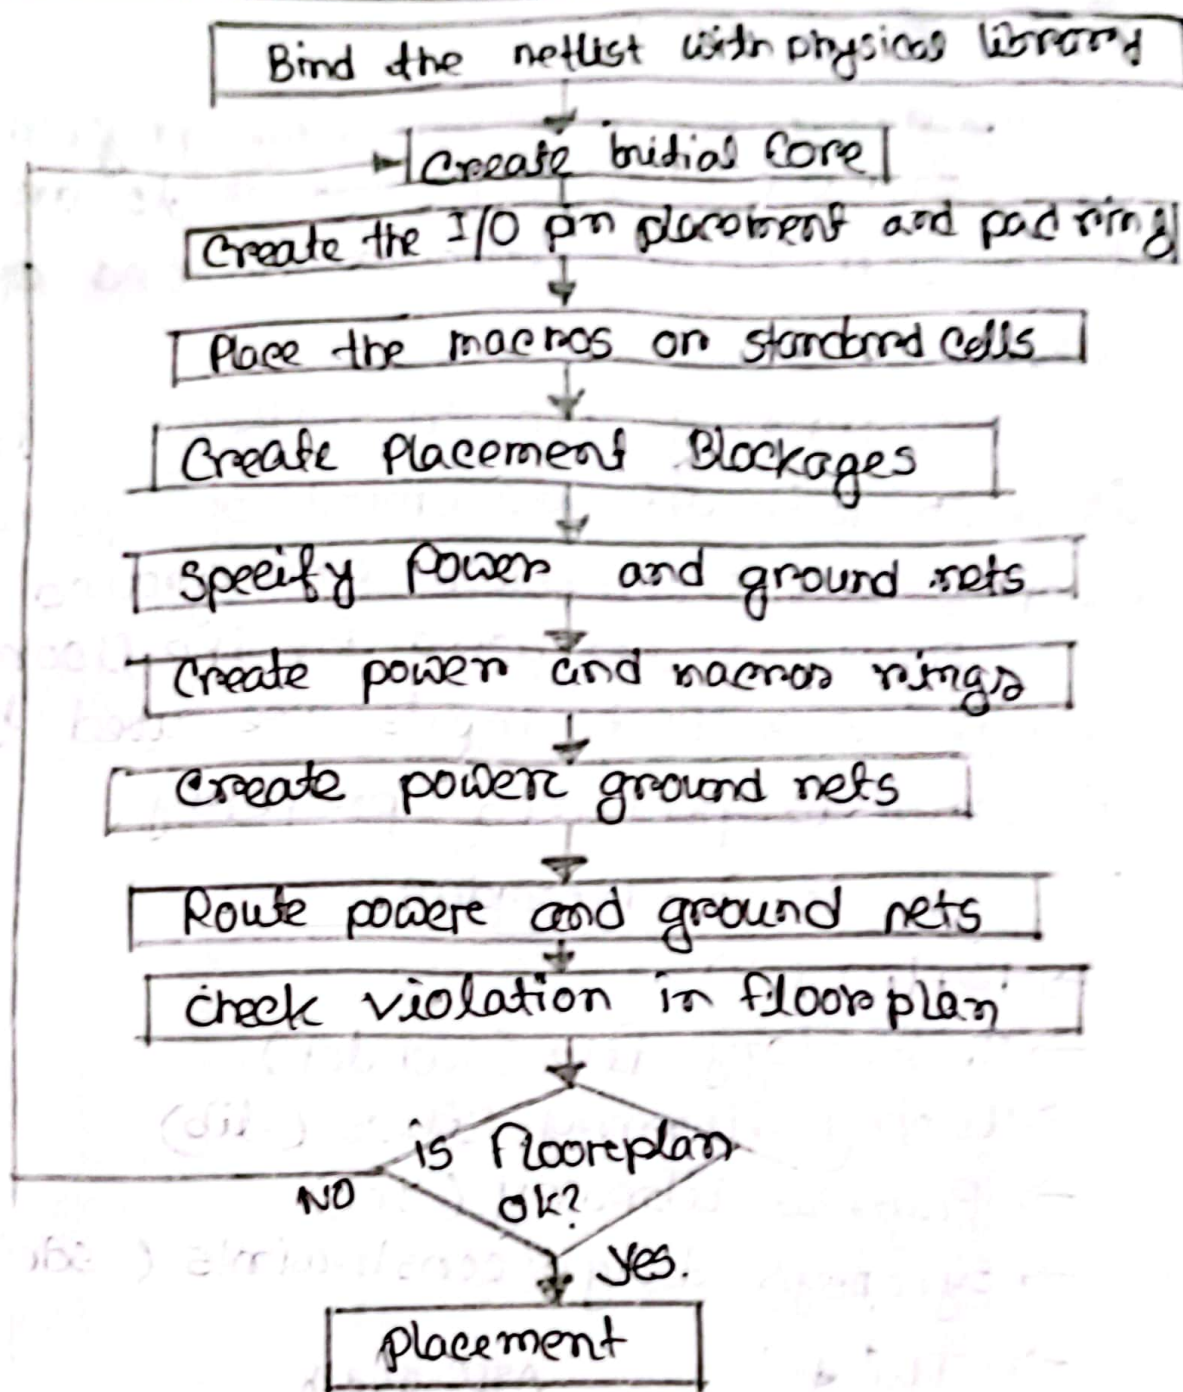 Bind the netlist with physical library
Create initial Core
Create the I/O pin placement and pad ring
Place the macros on standard cells
Create Placement Blockages
Specify Power and ground nets
Create power and macros rings
Create power ground nets
Route power and ground nets
Check violation in floorplan
is floorplan
NO
ok?
yes.
Placement